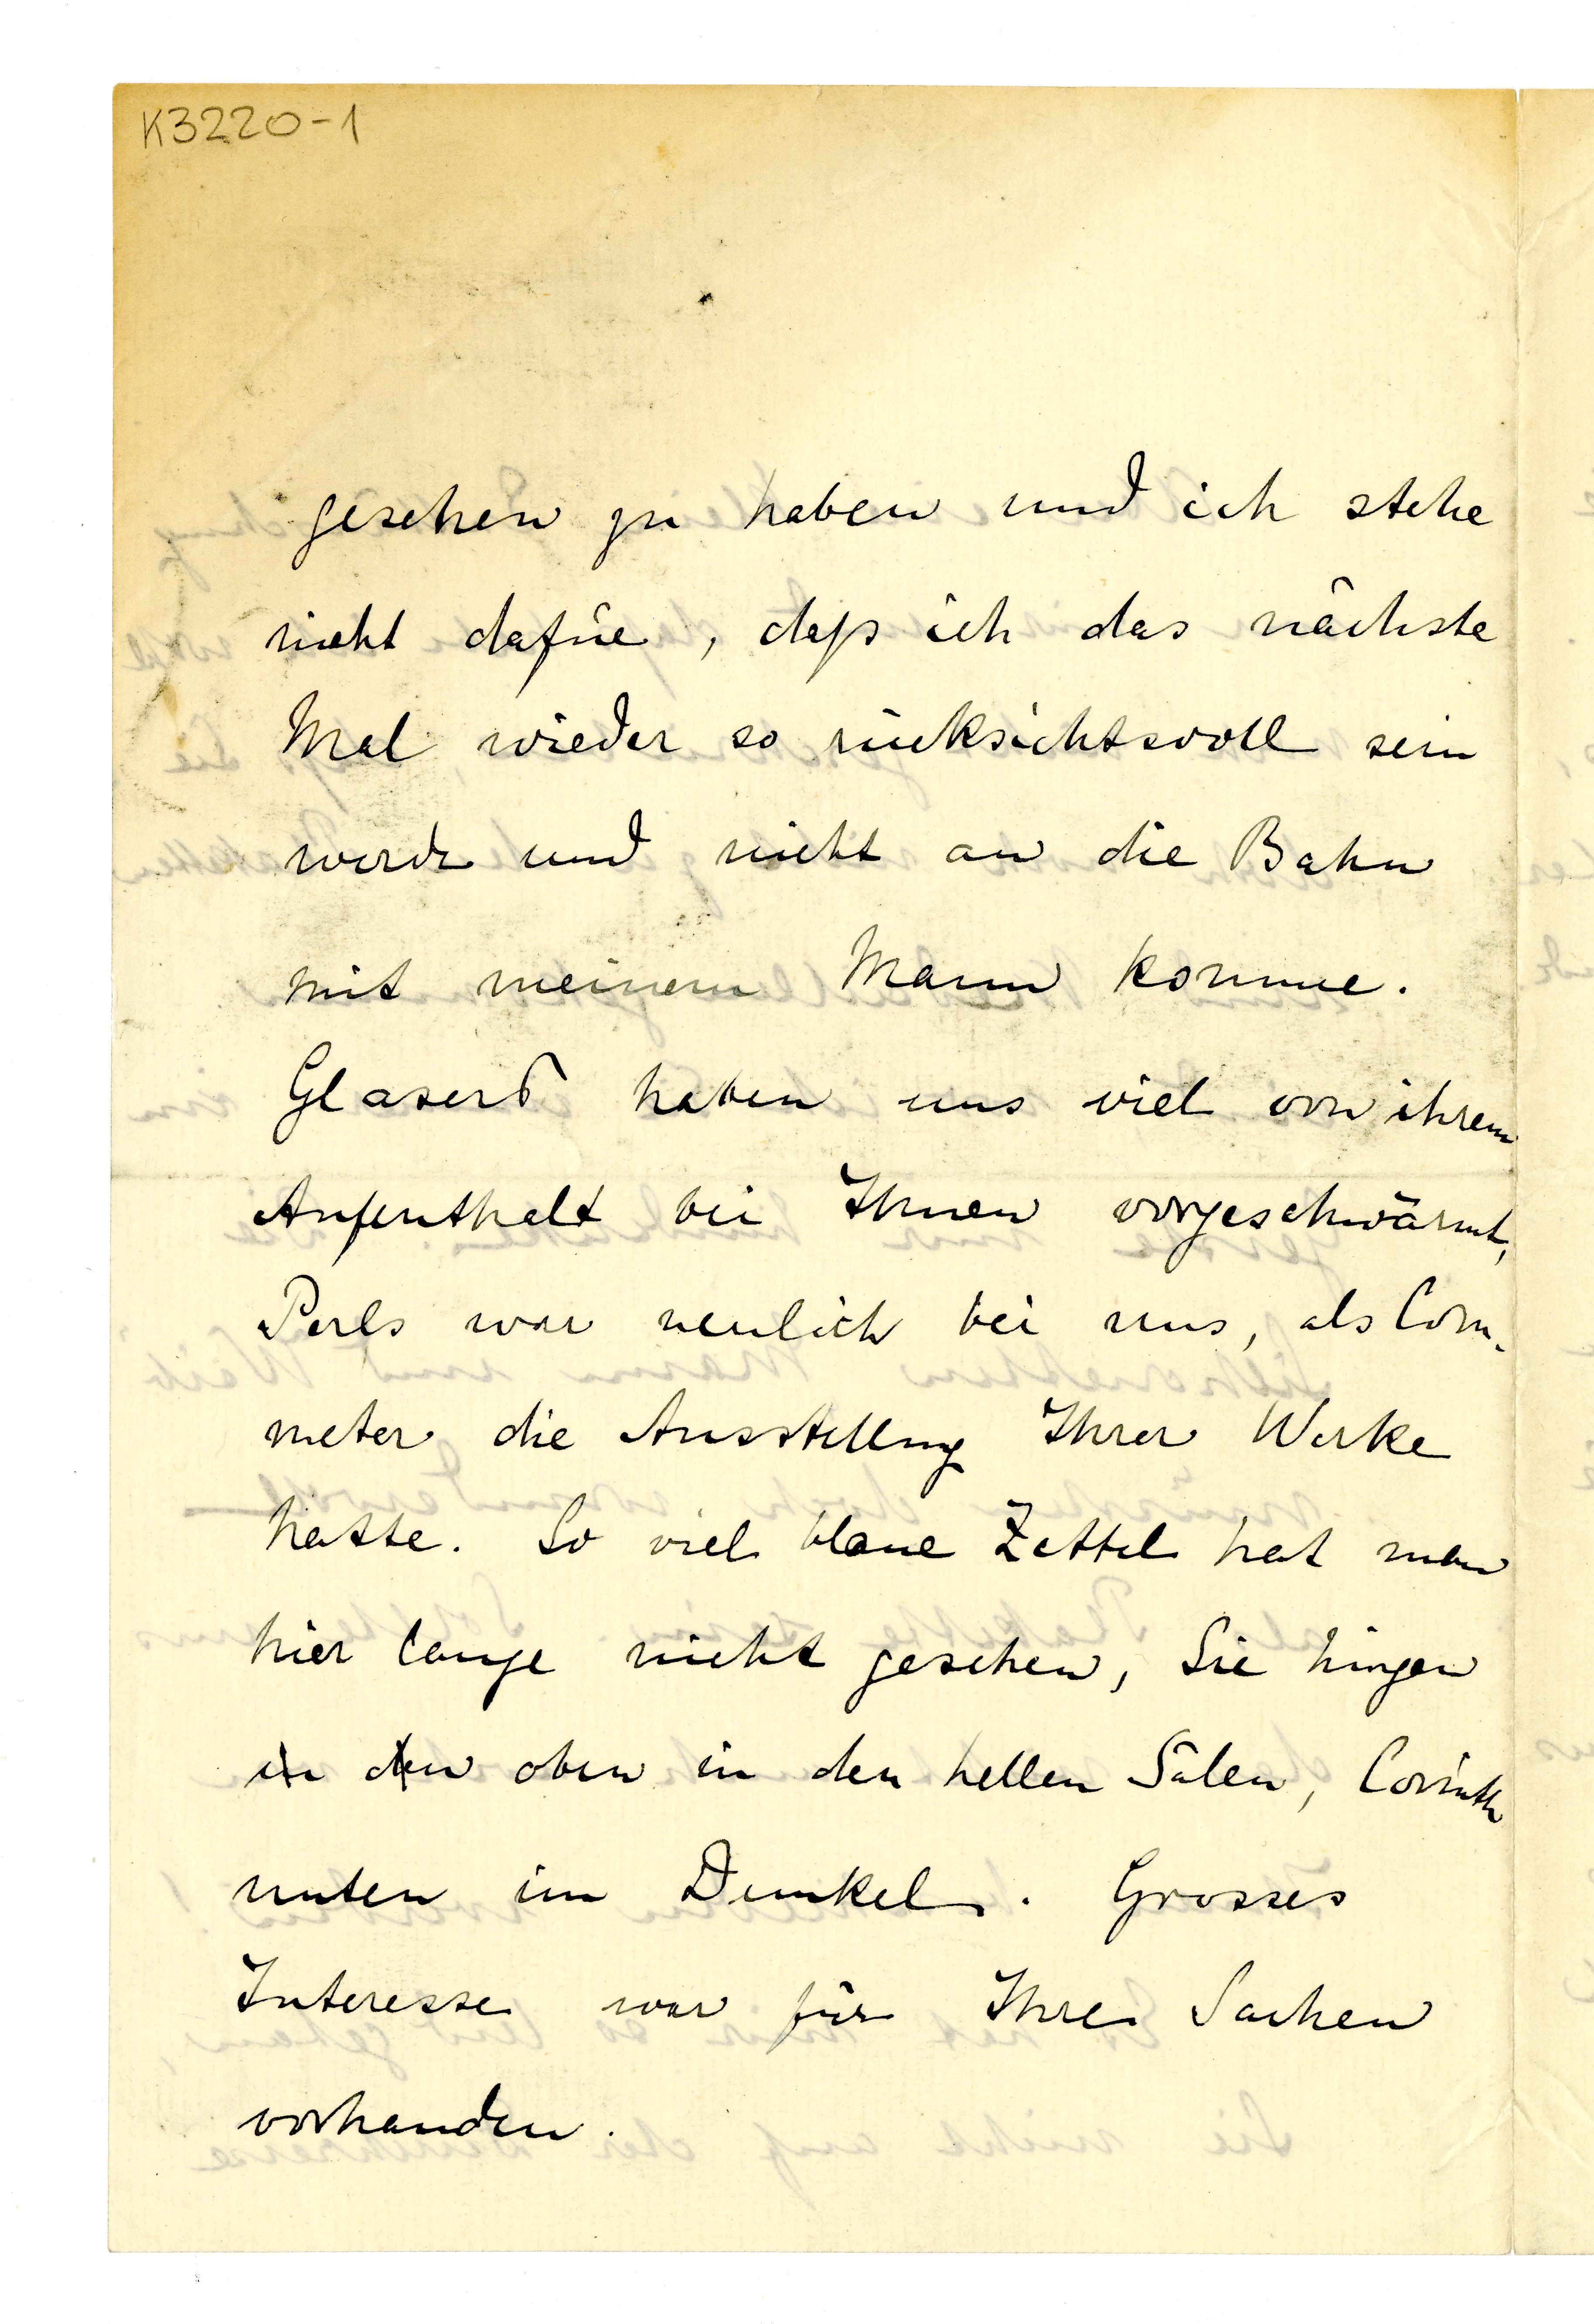 K3220-1
gesehen zu haben und ich stehe
nicht dafür, daß ich das nächste
Mal wieder so rücksichtsvoll sein
werde und nicht an die Bahn
mit meinem Mann komme.
Glasers haben uns viel von ihrem
Aufenthalt bei Ihnen vorgeschwärmt,
Perls war neulich bei uns, als Com-
meter die Ausstellung Ihrer Werke
hatte. So viel blaue Zettel hat man
hier lange nicht gesehen, Sie hingen
in den oben in den hellen Sälen, Corinth
unten im Dunkel. Grosses
Interesse war für Ihre Sachen
vorhanden.